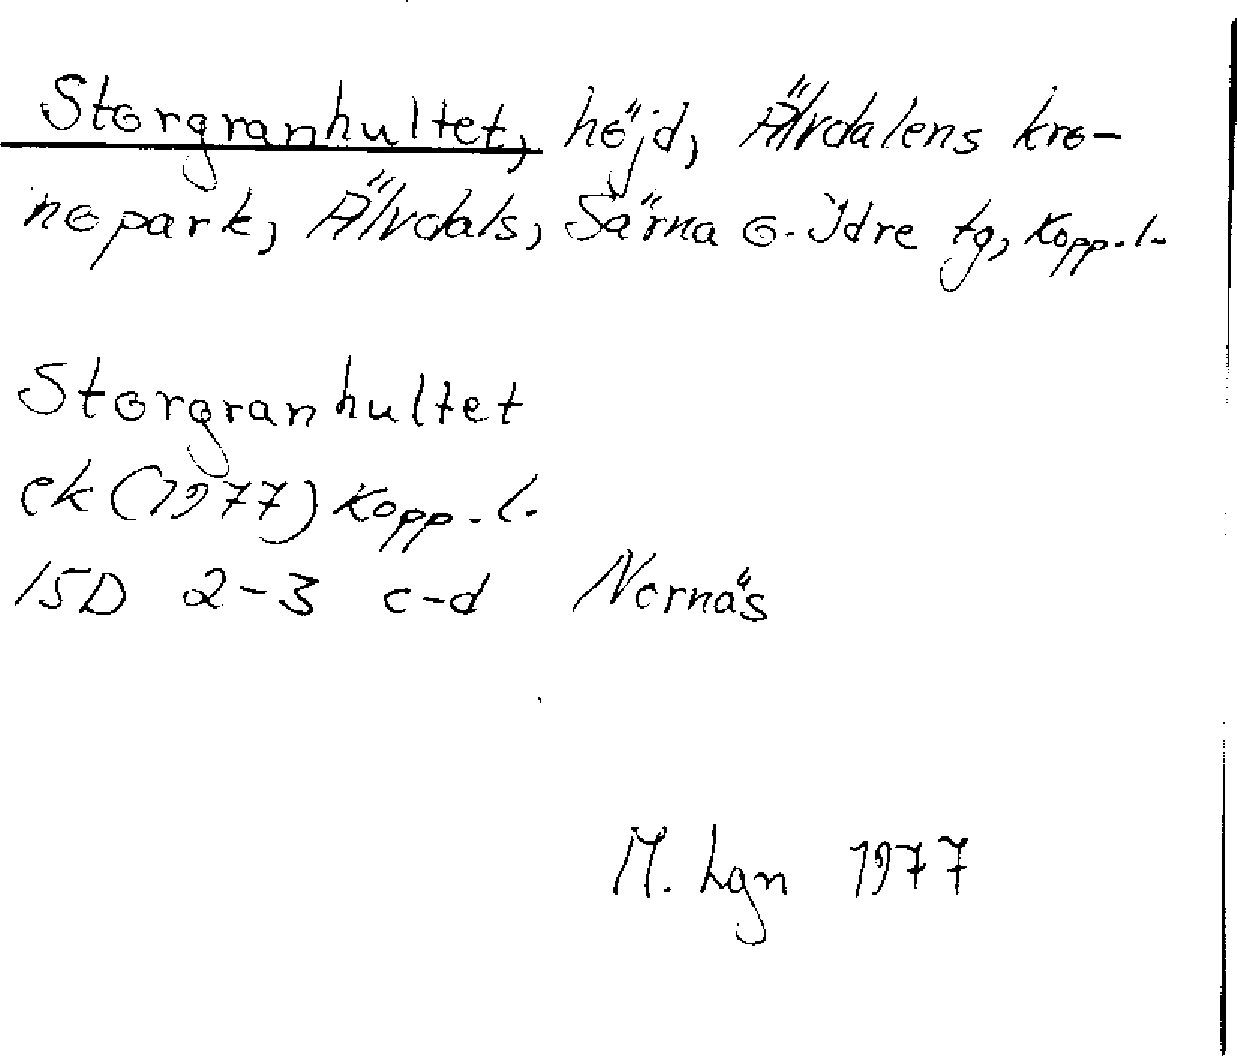 Storgranhultet, höjd, Älvdalens kro-
nopark, Älvdals, Särna o. Idre tg, Kopp. l.
Storgranhultet
ek (1977) Kopp. l.
15D 2-3 c-d Nornäs
M. Lgn 1977